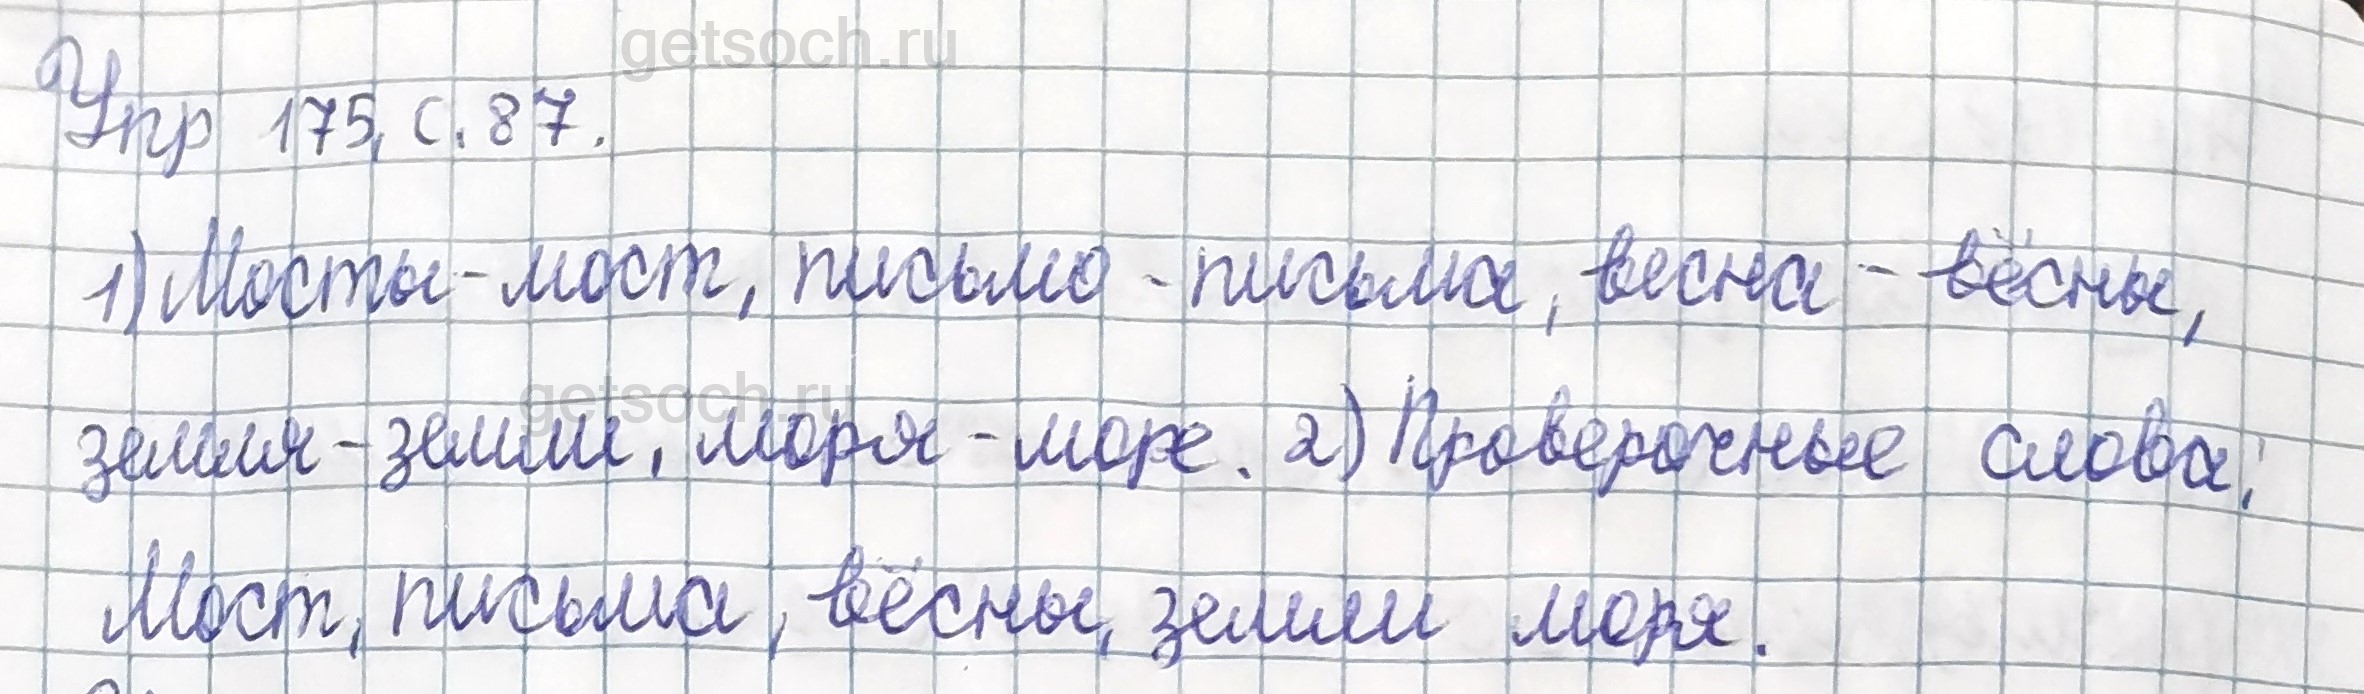 getsoch.ru
Упр 175, с. 87.
1) Мосты - мост, письмо - письма, весна - вёсны,
getsoch.ru
земля - земли, моря - море. 2) Проверочные слова:
Мост, письма, вёсны, земли моря.